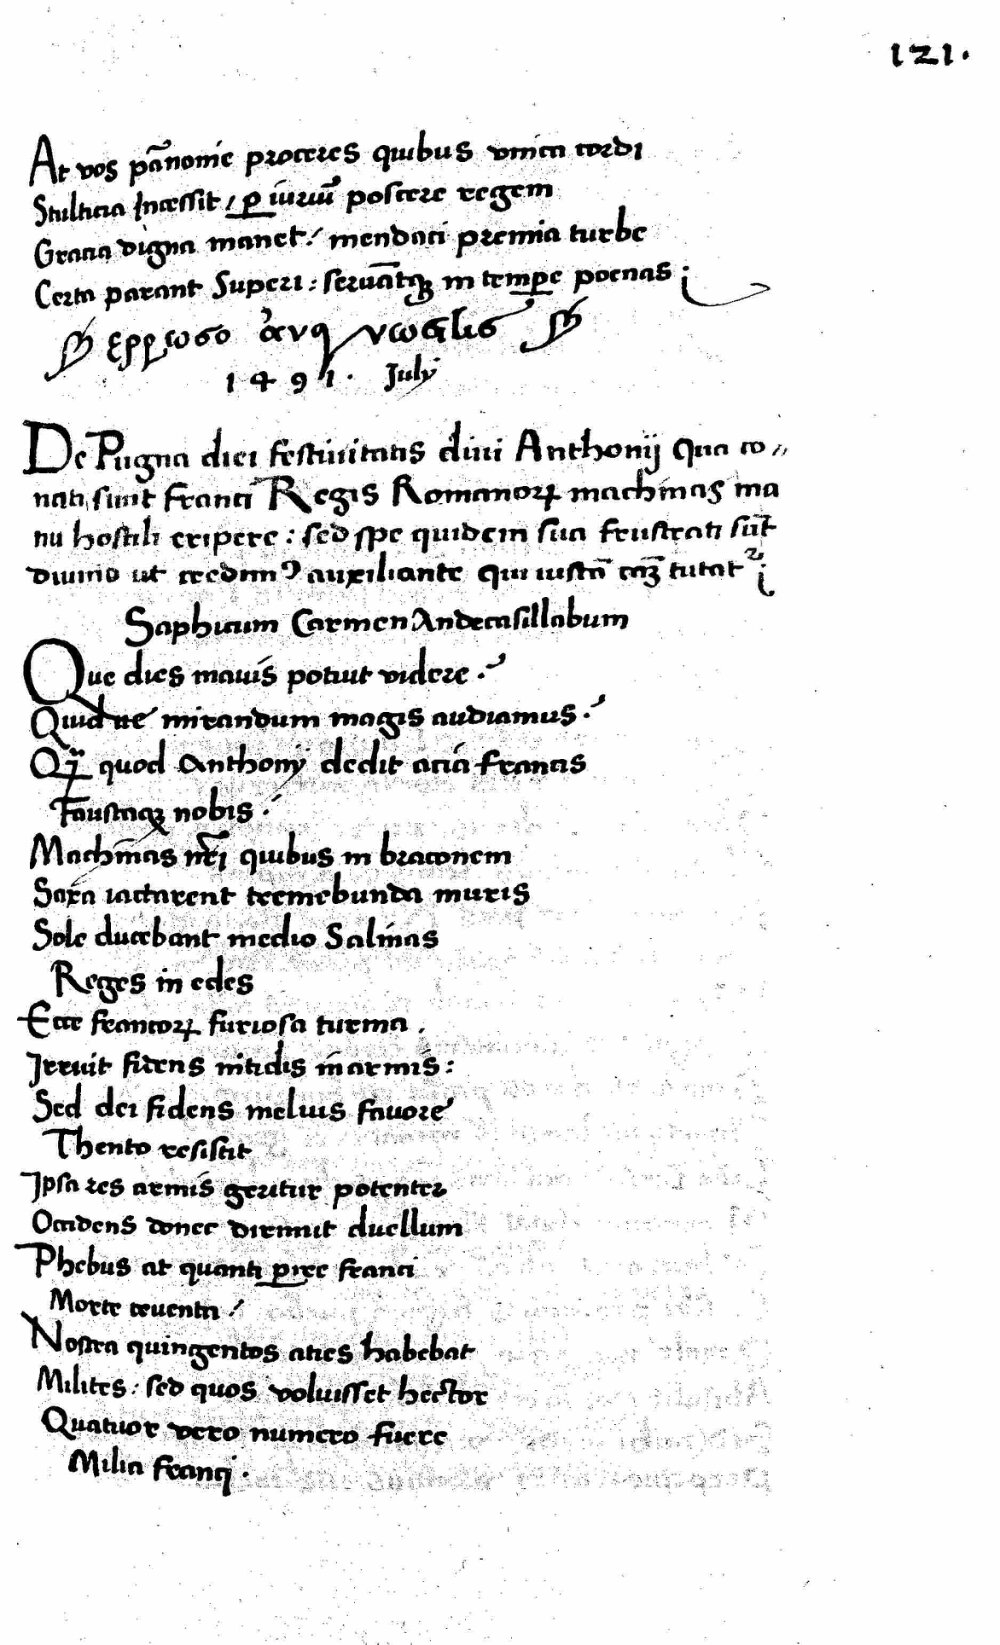 121.
At vos pānonie proceres quibus vnica cordi
Stulticia Incessit / ꝑ iuriū poscere regem
Gratia digna manet / mendaci premia turbe
Certa parant Superi : seruātqꝫ in tempe poenas ;
ερρωσο
1491. July
De Pugna diei festiuitatis diui Anthonij Qua co〃
nati sunt franci Regis Romanoꝝ machinas ma
nu hostili eripere : sed spe quidem sua frustrati sūt
diuino ut credimꝰ auxiliante qui iustā cāꝫ tutatᷣ ;
Saphicum Carmen Andecasillabum
Que dies mauis potuit videre .
Quidue mirandum magis audiamus .
Qꝫ quod Anthonij dedit acia francis
Faustaqꝫ nobis .
Machinas nr̄i quibus in braconem
Saxa iactarent tremebunda muris
Sole ducebant medio Salinas
Reges in edes
Ecce francoꝝ furiosa turma .
Irruit fidens nitidis in armis :
Sed dei fidens melius fauore
Thento resistit
Ipsa res armis geritur potenter
Occidens donec dirimit duellum
Phebus at quanti ꝑiere franci
Morte cruenta /
Nostra quingentos acies habebat
Milites : sed quos voluisset hector
Quatuor vero numero fuere
Milia franci .